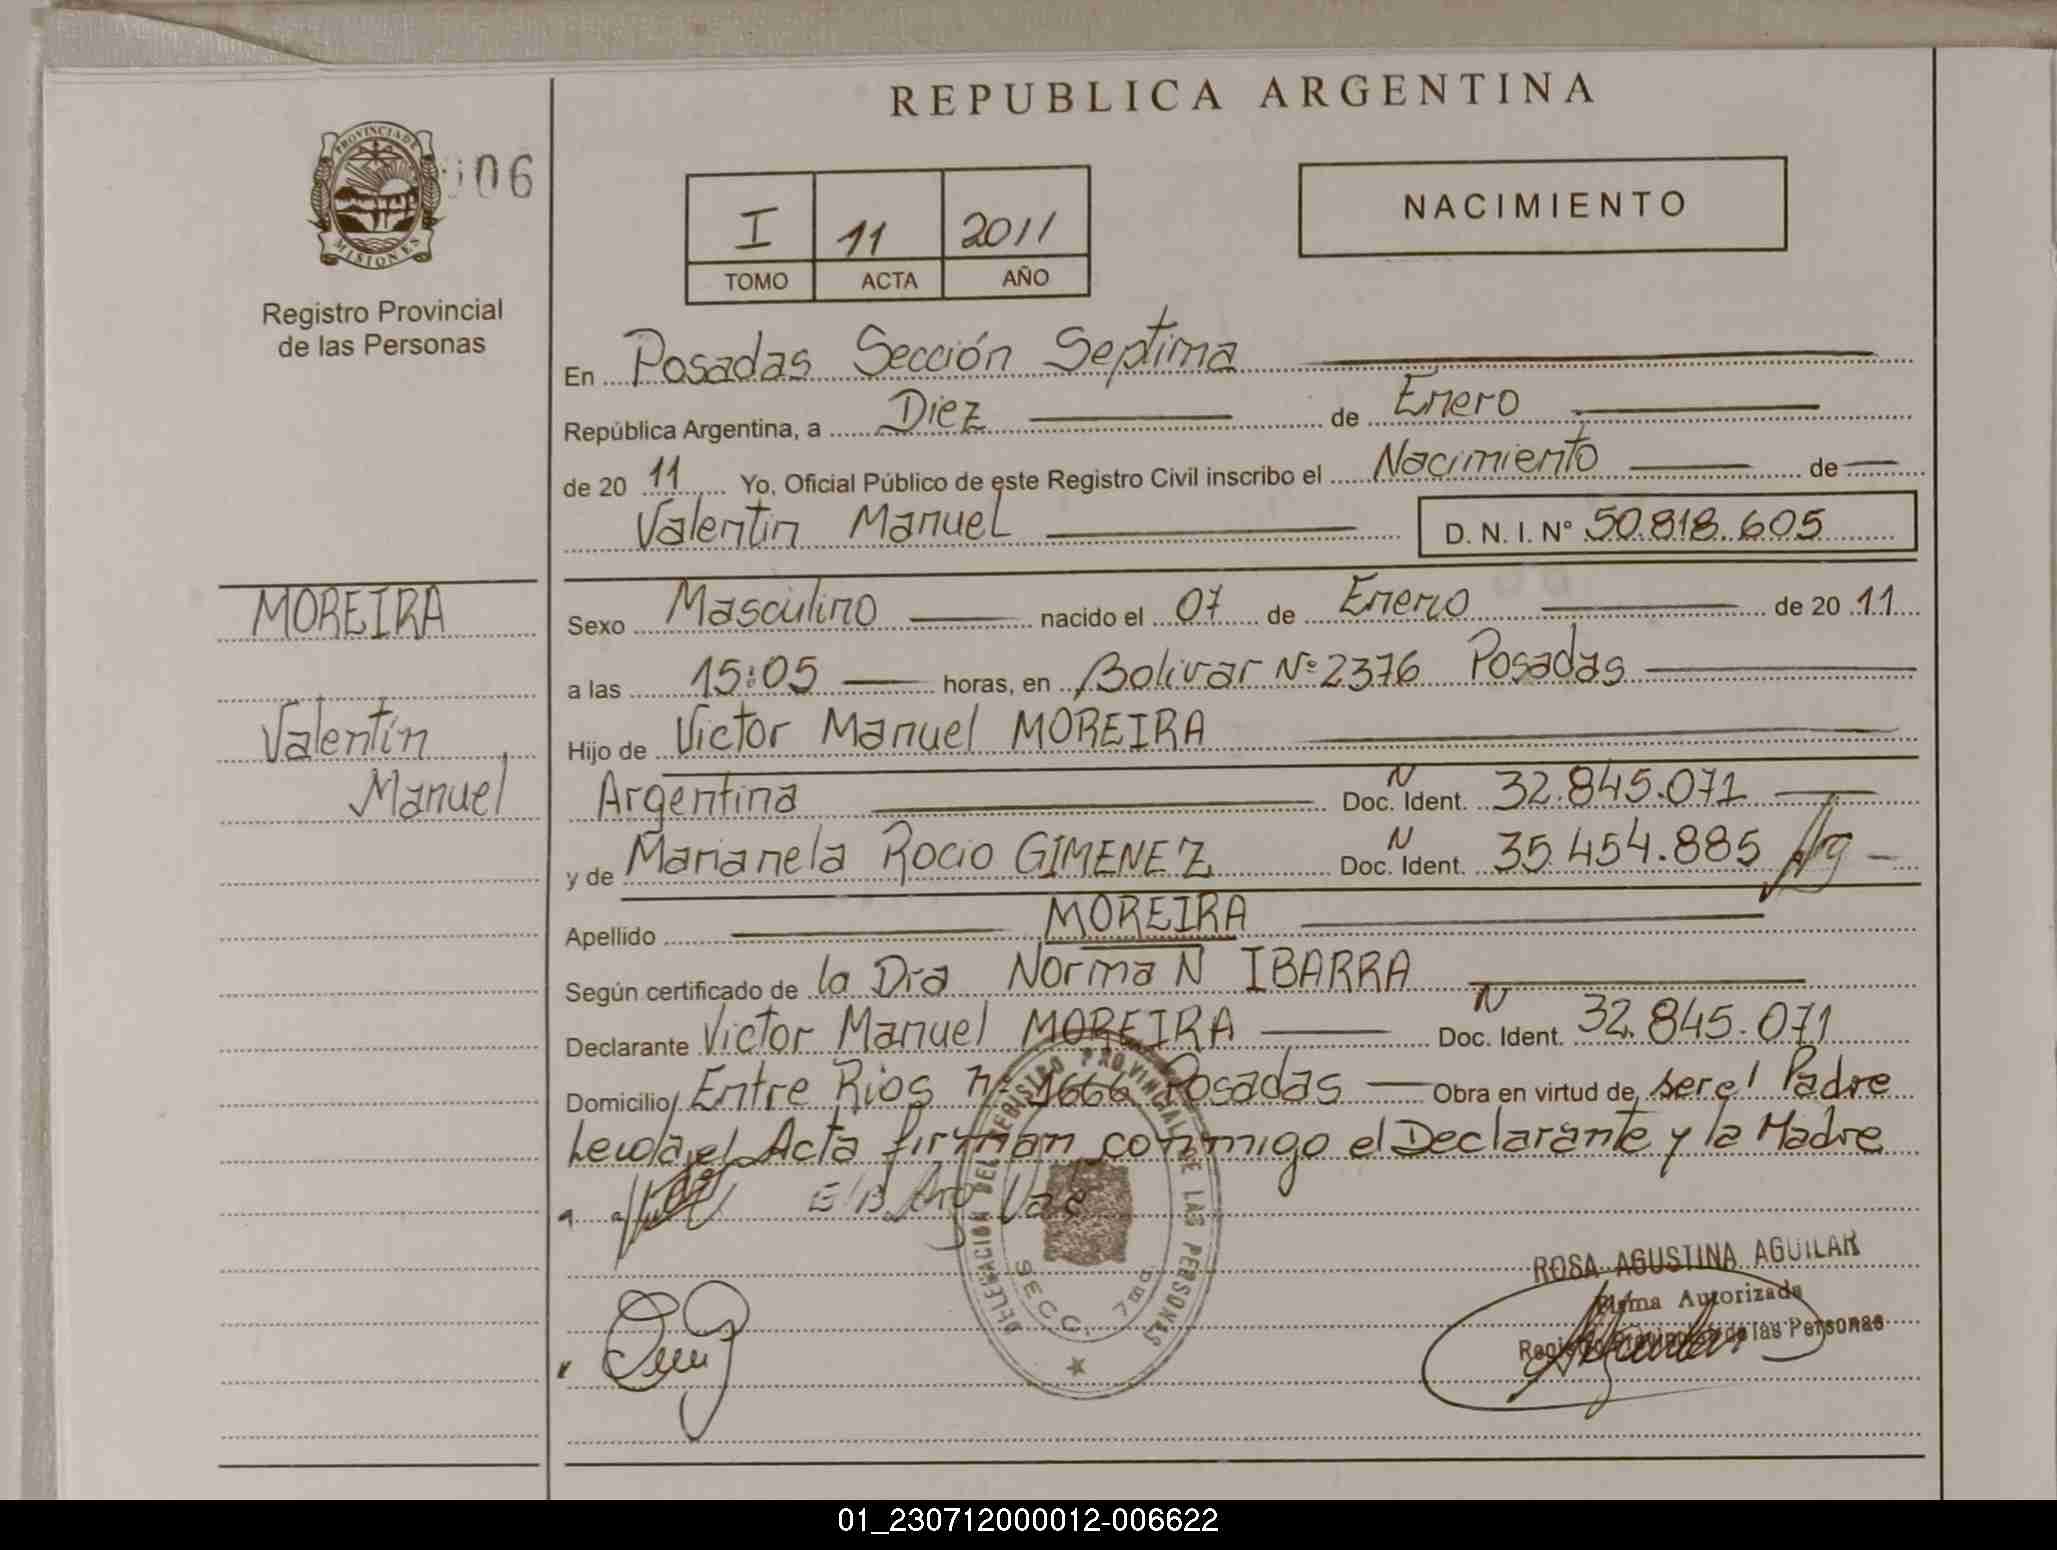 REPUBLICA ARGENTINA
PROVINCIA DE
MISIONES
006
Registro Provincial
de las Personas
I 11 2011
TOMO ACTA AÑO
NACIMIENTO
En Posadas Sección Septima
República Argentina, a Diez de Enero
de 20 11 Yo, Oficial Público de este Registro Civil inscribo el Nacimiento de
Valentin Manuel D. N. I. N° 50.818.605
MOREIRA
Valentín
Manuel
Sexo Masculino nacido el 07 de Enero de 20 11
a las 15:05 horas, en Bolivar Nº 2376 Posadas
Hijo de Victor Manuel MOREIRA
Argentina N Doc. Ident. 32.845.071
y de Marianela Rocio GIMENEZ N Doc. Ident. 35.454.885 Arg
Apellido MOREIRA
Según certificado de la Dra Norma N IBARRA
Declarante Victor Manuel MOREIRA N Doc. Ident. 32.845.071
Domicilio Entre Rios Nº 1666 Posadas Obra en virtud de ser el Padre
Leida el Acta firman conmigo el Declarante y la Madre
E/B Arg Vale
DELEGACIÓN DEL REGISTRO PROVINCIAL DE LAS PERSONAS
SECC. 7ma
ROSA AGUSTINA AGUILAR
Firma Autorizada
Registro Provincial de las Personas
01_230712000012-006622